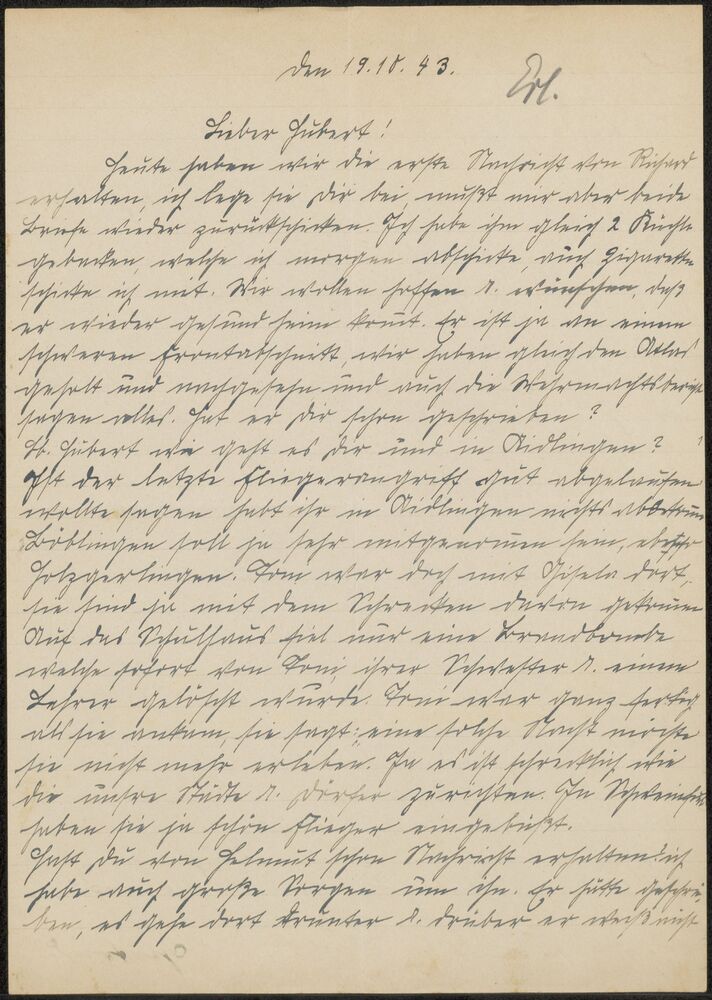 den 19.10.43.
Erl.
Lieber Hubert!
Heute haben wir die erste Nachricht von Richard
erhalten, ich lege sie Dir bei, mußt mir aber beide
Briefe wieder zurückschicken. Ich habe ihm gleich 2 Küchle
gebacken, welche ich morgen abschicke, auch Zigaretten
schicke ich mit. Wir wollen hoffen u. wünschen, daß
er wieder gesund heim kommt. Er ist ja an einem
schweren Frontabschnitt, wir haben gleich den Atlas
geholt und nachgesehn und auch die Wehrmachtsberichte
sagen alles. Hat er Dir schon geschrieben?
Lb. Hubert wie geht es Dir und in Aidlingen?
Ist der letzte Fliegerangriff gut abgelaufen
wollte sagen habt ihr in Aidlingen nichts abbekommen
Böblingen soll ja sehr mitgenommen sein, ebenso
Holzgerlingen. Toni war doch mit Gisela dort,
sie sind ja mit dem Schrecken davon gekommen
Auf das Schulhaus fiel nur eine Brandbombe
welche sofort von Toni ihrer Schwester u. einem
Lehrer gelöscht wurde. Toni war ganz fertig
als sie ankam, sie sagt: eine solche Nacht möchte
sie nicht mehr erleben. Ja es ist schrecklich wie
die unsre Städte u. Dörfer zurichten. In Schweinfurt
haben sie ja schön Flieger eingebüßt.
Hast Du von Helmut schon Nachricht erhalten? ich
habe auch große Sorgen um ihn. Er hätte geschrie-
ben, es gehe dort drunter u. drüber er weiß nicht